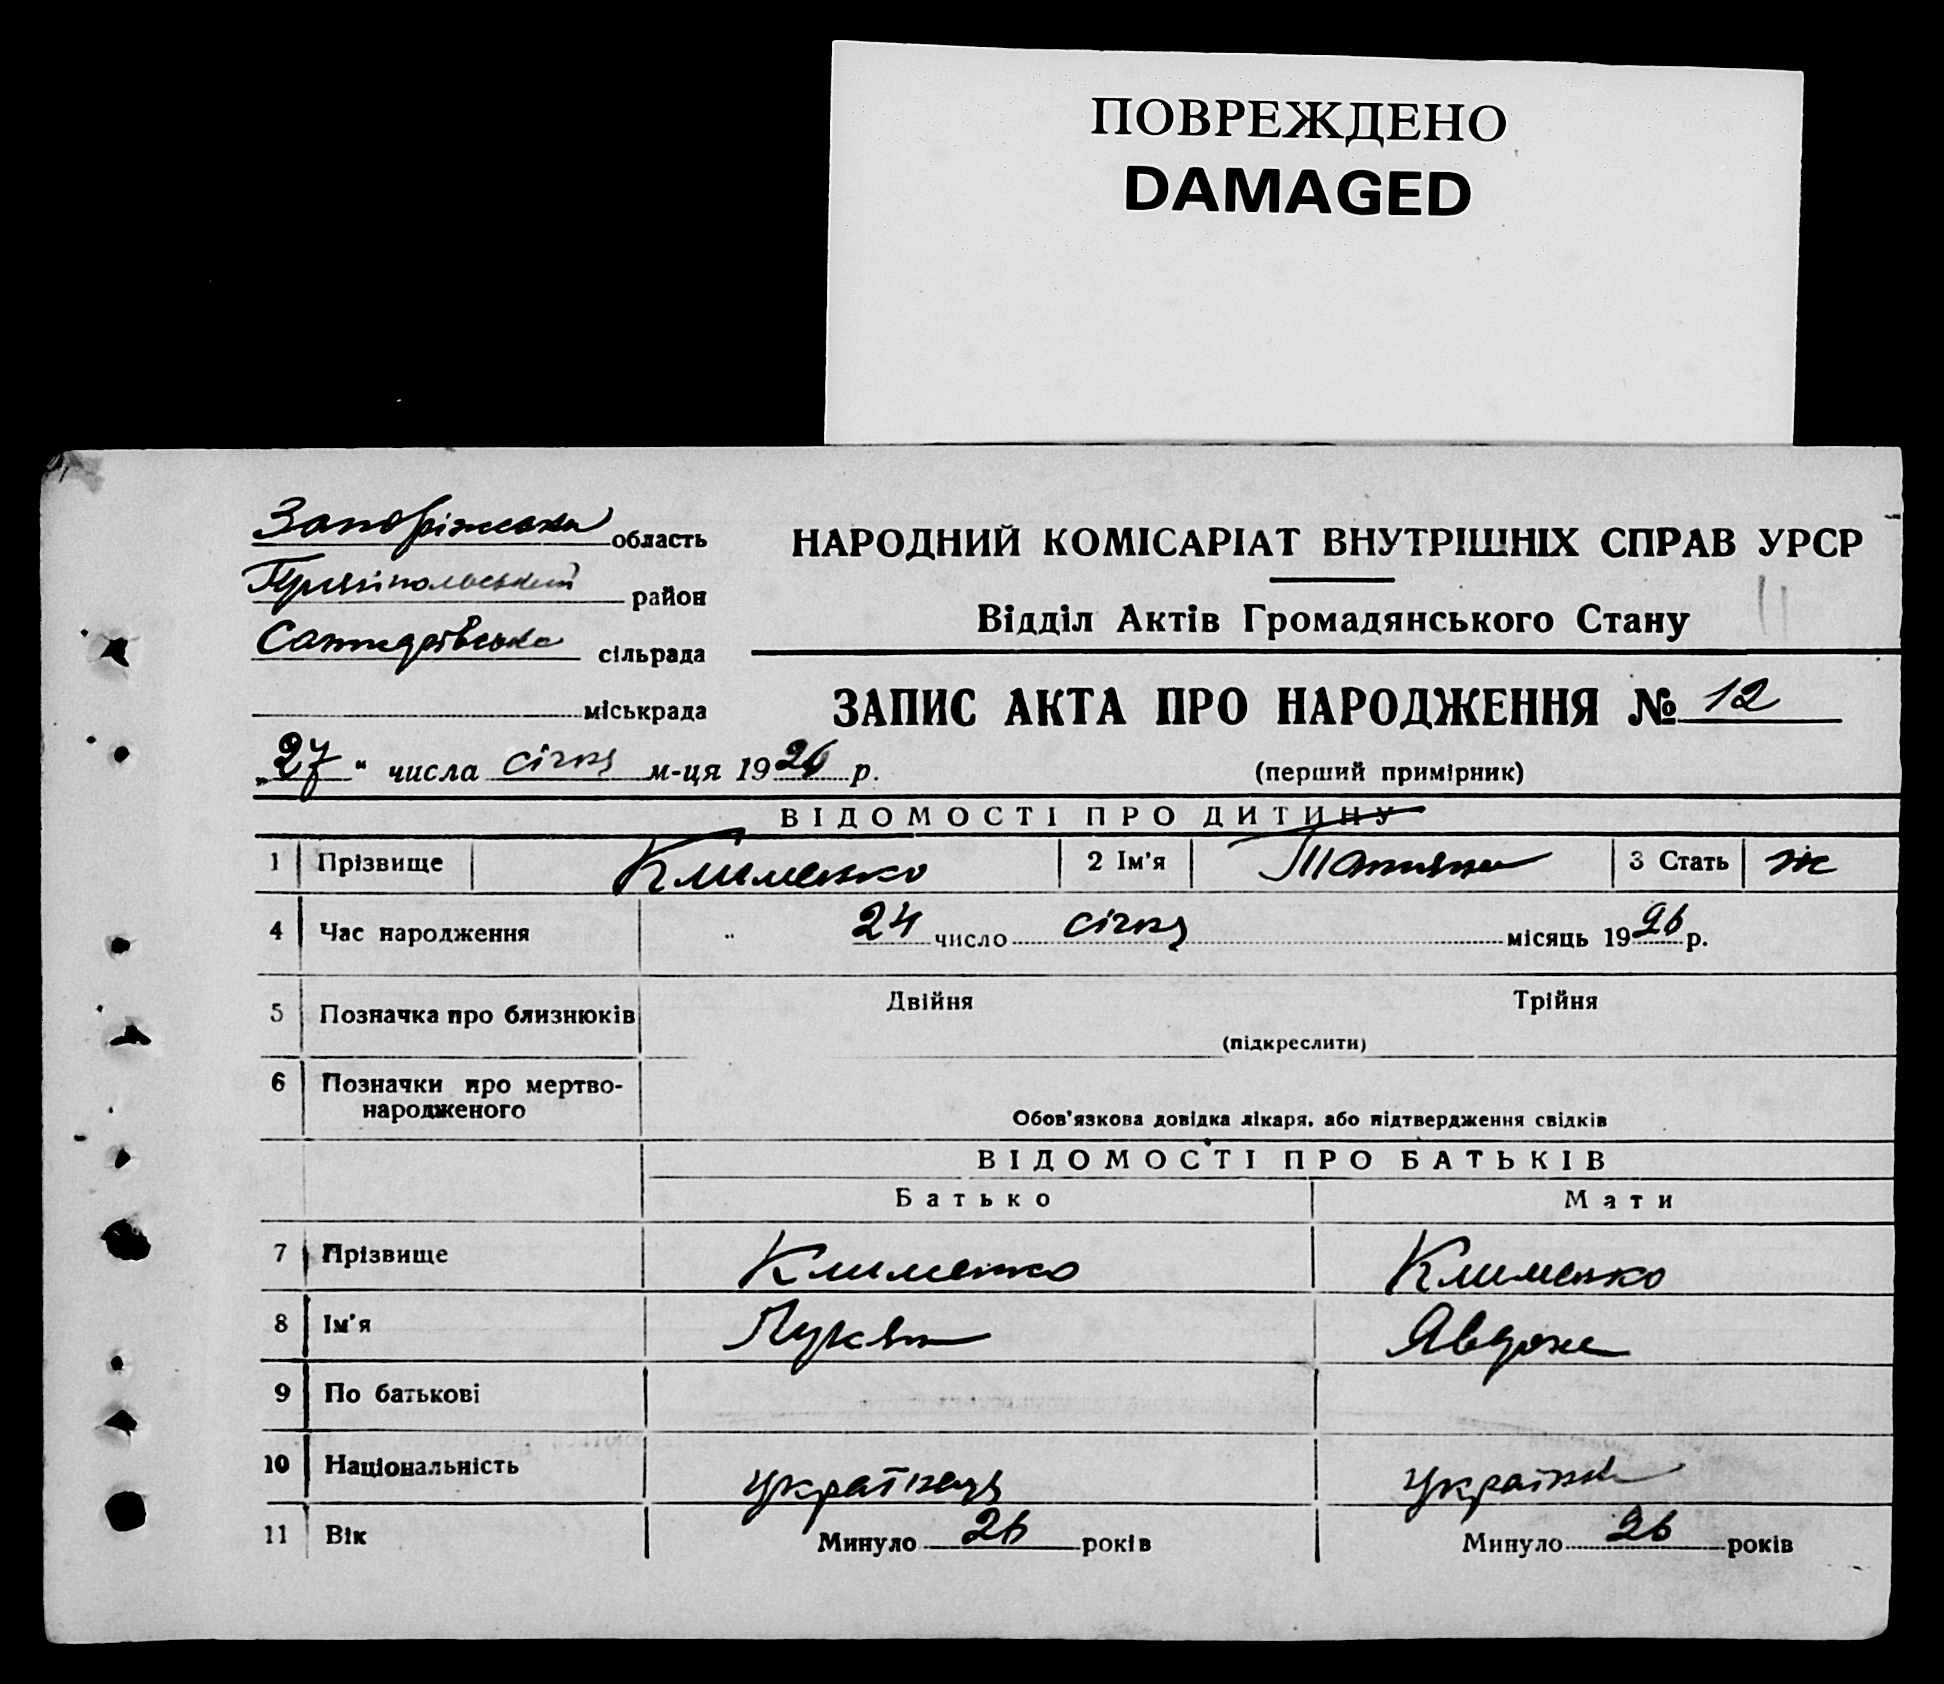 ПОВРЕЖДЕНО
DAMAGED
Запоріжська область
Гуляйпольський район
сільрада
міськрада
НАРОДНИЙ КОМІСАРІАТ ВНУТРІШНІХ СПРАВ УРСР
Відділ Актів Громадянського Стану
ЗАПИС АКТА ПРО НАРОДЖЕННЯ № 12
„27“ числа січня м-ця 1926 р.
(перший примірник)
ВІДОМОСТІ ПРО ДИТИНУ
1 Прізвище Клименко 2 Ім'я Татяна 3 Стать ж
4 Час народження 24 число січня місяць 1926 р.
5 Позначка про близнюків Двійня Трійня
(підкреслити)
6 Позначки про мертво-
народженого
Обов'язкова довідка лікаря, або підтвердження свідків
ВІДОМОСТІ ПРО БАТЬКІВ
Батько Мати
7 Прізвище Клименко Клименко
8 Ім'я Лукян Явдоха
9 По батькові
10 Національність українець українка
11 Вік Минуло 26 років Минуло 26 років